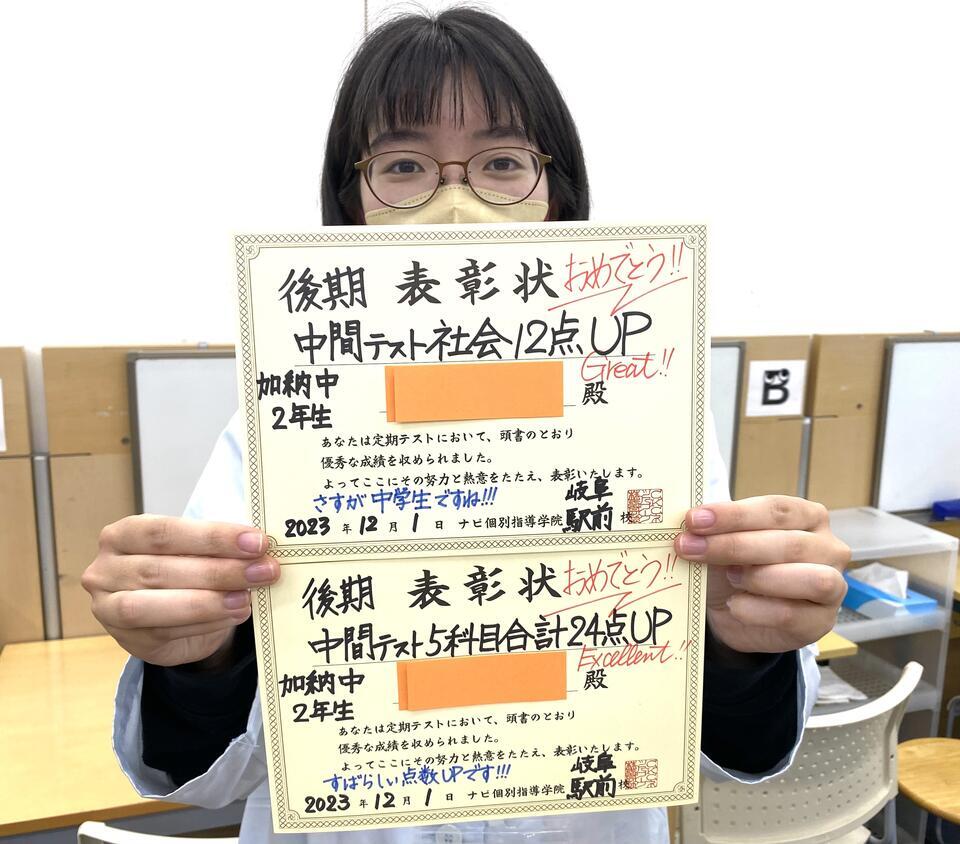 後期 表彰状 おめでとう!!
中間テスト社会12点UP
Great!!
加納中
2年生
殿
あなたは定期テストにおいて、頭書のとおり
優秀な成績を収められました。
よってここにその努力と熱意をたたえ、表彰いたします。
さすが中学生ですね!!!
岐阜
2023年12月1日 ナビ個別指導学院 駅前校
後期 表彰状 おめでとう!!
中間テスト5科目合計24点UP
Excellent!!
加納中
2年生
殿
あなたは定期テストにおいて、頭書のとおり
優秀な成績を収められました。
よってここにその努力と熱意をたたえ、表彰いたします。
すばらしい点数UPです!!!
岐阜
2023年12月1日 ナビ個別指導学院 駅前校
B